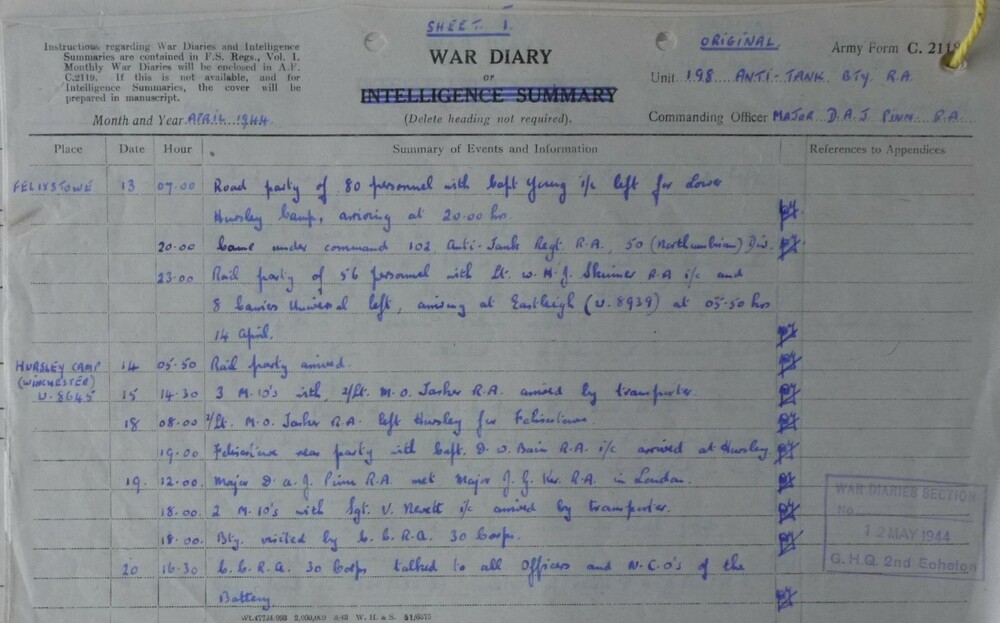 SHEET 1.
Instructions regarding War Diaries and Intelligence
Summaries are contained in F.S. Regs., Vol. I.
Monthly War Diaries will be enclosed in A.F.
C.2119. If this is not available, and for
Intelligence Summaries, the cover will be
prepared in manuscript.
Month and Year APRIL 1944
WAR DIARY
or
INTELLIGENCE SUMMARY
(Delete heading not required).
ORIGINAL.
Army Form C. 2118
Unit 198 ANTI-TANK BTY R.A.
Commanding Officer MAJOR D.A.J. PINN R.A.
Place Date Hour Summary of Events and Information References to Appendices
FELIXSTOWE 13 07.00 Road party of 80 personnel with Capt Young i/c left for Lower
Hursley Camp, arriving at 20.00 hrs.
20.00 Came under command 102 Anti-Tank Regt R.A. 50 (Northumbrian) Div.
23.00 Rail party of 56 personnel with Lt. W.H.J. Skinner R.A i/c and
8 Carriers Universal left, arriving at Eastleigh (U.8939) at 05.50 hrs
14 April.
HURSLEY CAMP 14 05.50 Rail party arrived.
(WINCHESTER)
U.8645 15 14.30 3 M.10's with 2/Lt. M.O. Tasker R.A. arrived by transporter
18 08.00 2/Lt. M.O. Tasker R.A. left Hursley for Felixstowe.
19.00 Felixstowe rear party with Capt. D.W. Bain R.A. i/c arrived at Hursley
19. 12.00. Major D.A.J. Pinn R.A. met Major J.G. R.A. in London.
18.00. 2 M.10's with Sgt. V. Nevett i/c arrived by transporter.
18.00. Bty. visited by C.C.R.A. 30 Corps.
20 16.30 C.C.R.A. 30 Corps talked to all Officers and N.C.O's of the
Battery
WAR DIARIES SECTION
No.
12 MAY 1944
G.H.Q. 2nd Echelon
W. H. & S. 51/6375